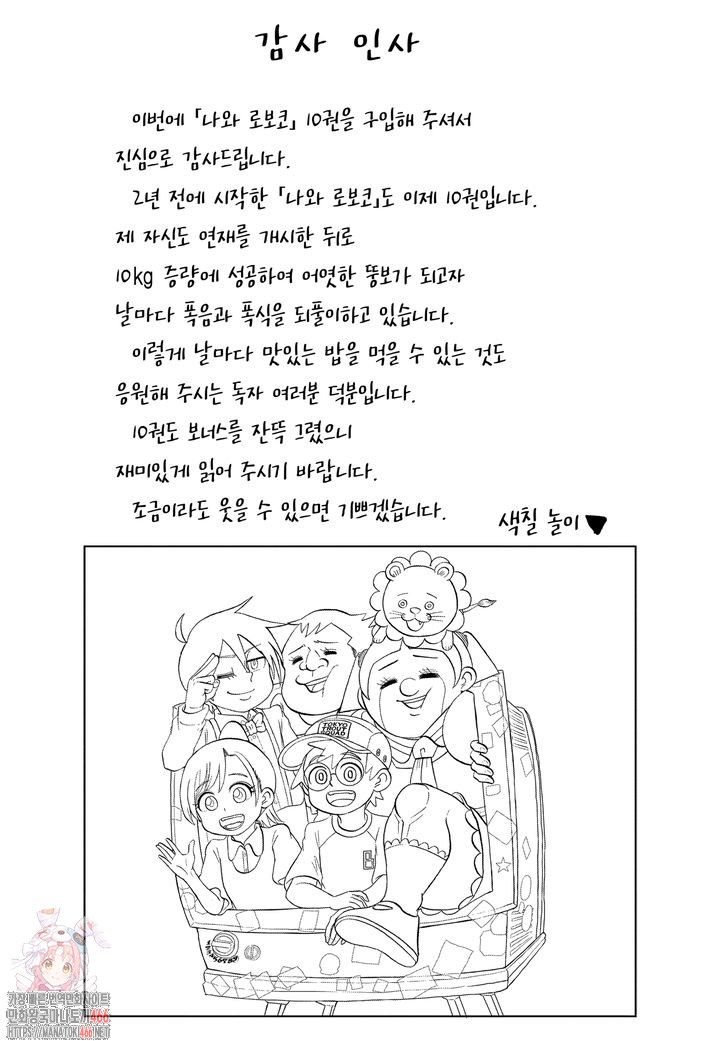 감사 인사
이번에 「나와 로보코」 10권을 구입해 주셔서
진심으로 감사드립니다.
2년 전에 시작한 「나와 로보코」도 이제 10권입니다.
제 자신도 연재를 개시한 뒤로
10kg 증량에 성공하여 어엿한 뚱보가 되고자
날마다 폭음과 폭식을 되풀이하고 있습니다.
이렇게 날마다 맛있는 밥을 먹을 수 있는 것도
응원해 주시는 독자 여러분 덕분입니다.
10권도 보너스를 잔뜩 그렸으니
재미있게 읽어 주시기 바랍니다.
조금이라도 웃을 수 있으면 기쁘겠습니다.
색칠 놀이♥
TOKYO
SQUAD
B
가장빠른번역만화사이트
만화왕국마나토끼466
HTTPS://MANATOKI466.NET